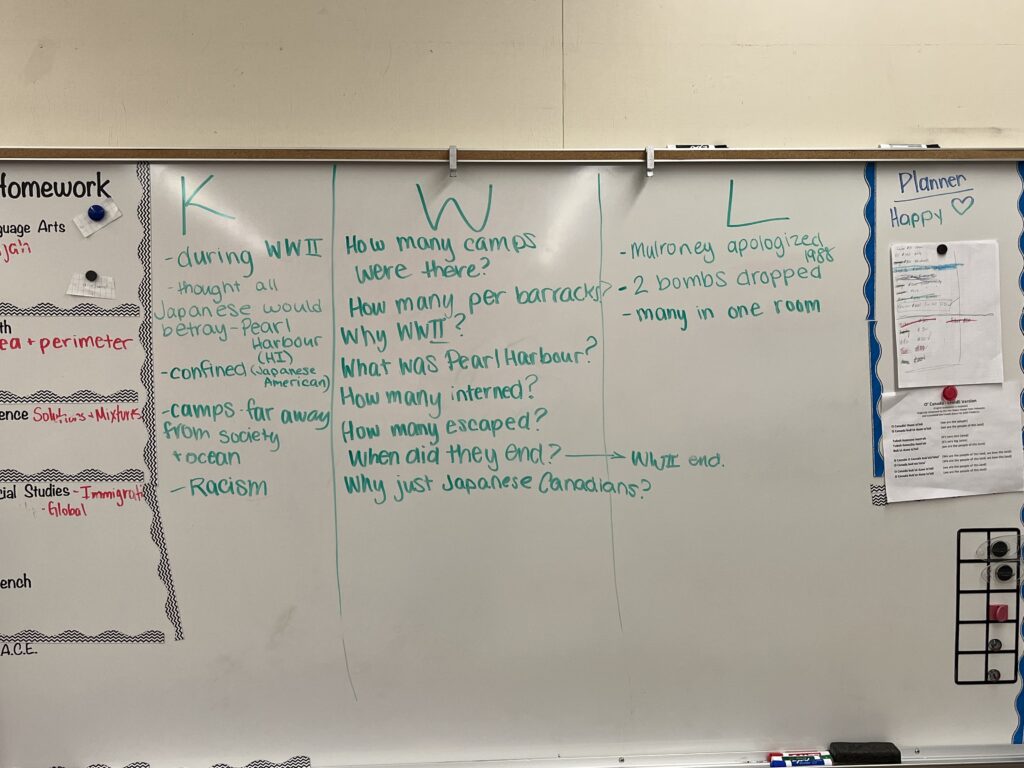 Homework
guage Arts
th
ea + perimeter
ence Solutions + Mixtures
cial Studies - Immigrati
- Global
ench
A.C.E.
K
- during WWII
- thought all
Japanese would
betray - Pearl
Harbour
(HI)
- confined (Japanese
American)
- camps - far away
from society
+ ocean
- Racism
W
How many camps
were there?
How many per barracks?
Why WWII?
What was Pearl Harbour?
How many interned?
How many escaped?
When did they end? → WWII end.
Why just Japanese Canadians?
L
- Mulroney apologized
1988
- 2 bombs dropped
- many in one room
Planner
Happy ♡